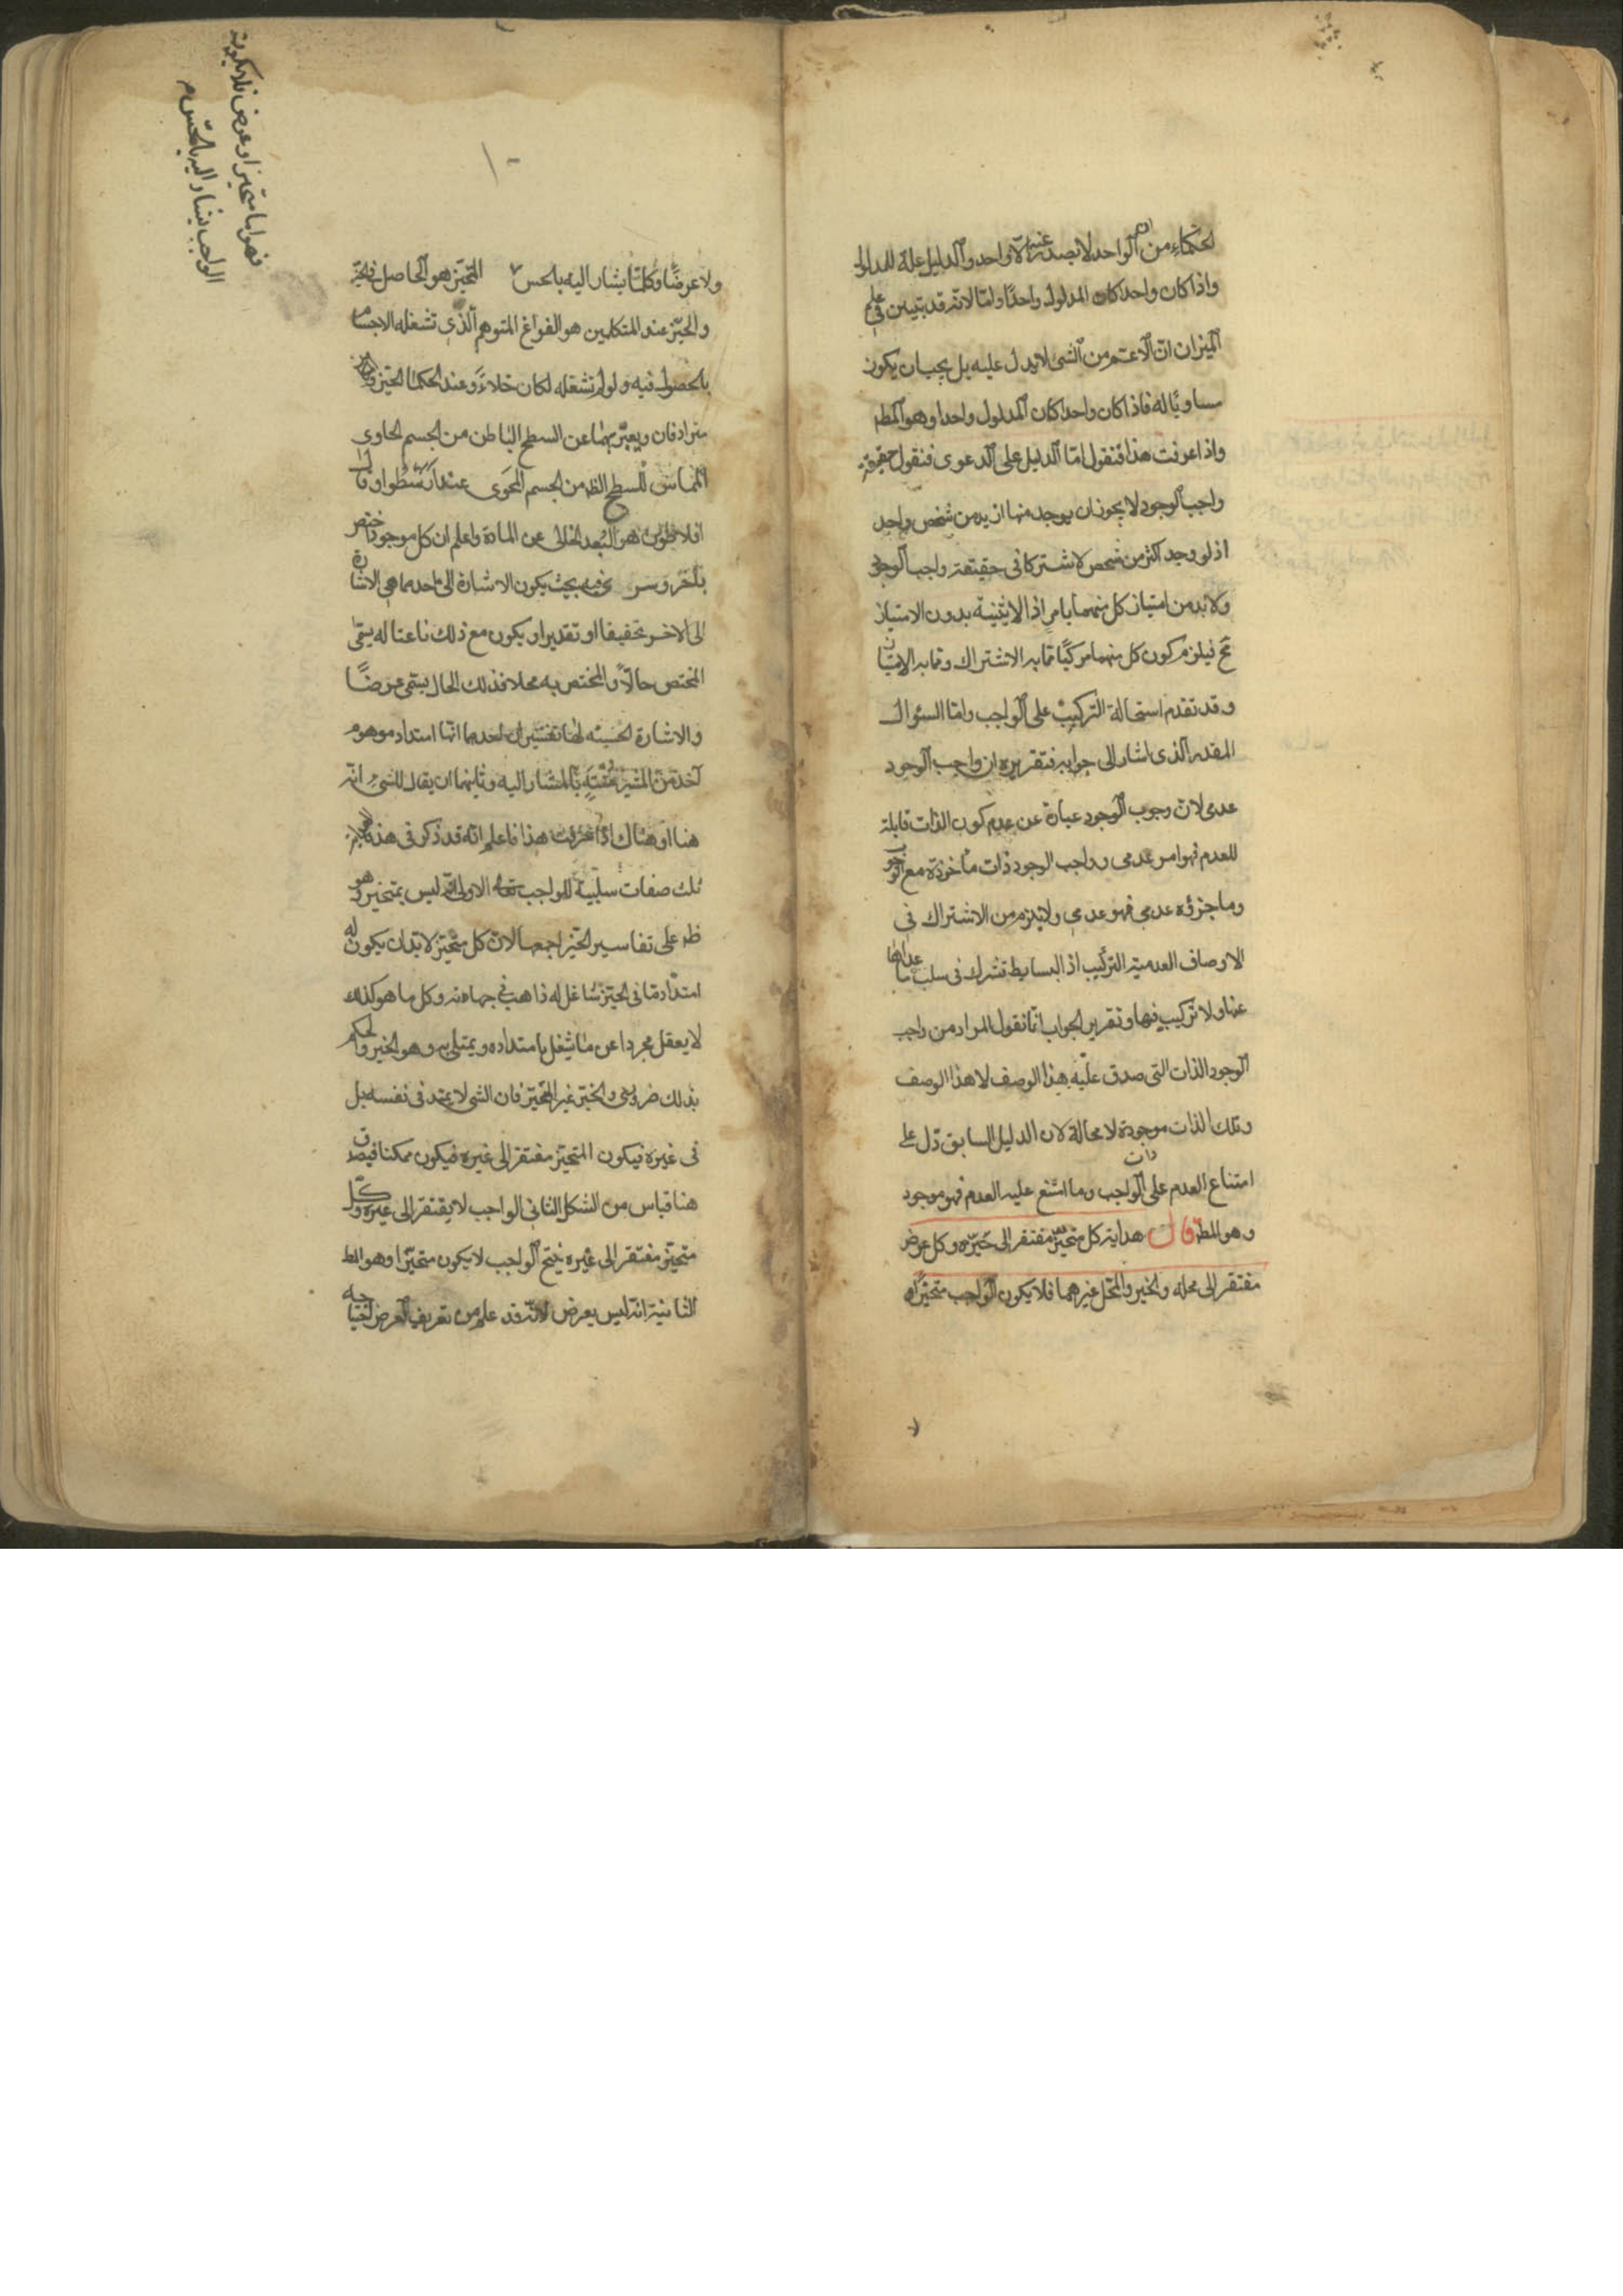 الحكماء من ان الواحد لا يصدر عنه الا واحد والدليل علة للمدلول
واذا كان واحدا كان المدلول واحدا واما لانه قد تبين فى علم
الميزان ان الاعم من الشئ لا يدل عليه بل يجب ان يكون
مساويا له فاذا كان واحدا كان المدلول واحدا وهو المطـ
واذا عرفت هذا فنقول اما الدليل على الدعوى فنقول حقيقة
واجب الوجود لا يجوز ان يوجد منها ازيد من شخص واحد
اذ لو وجد اكثر من شخص لاشتركا فى حقيقة واجب الوجود
ولا بد من امتياز كل منهما بامر اذ الاثنينية بدون الامتياز
مح فيلزم كون كل منهما مركبا مما به الاشتراك ومما به الامتياز
وقد تقدم استحالة التركيب على الواجب واما السؤال
المقدر الذى اشار الى جوابه فتقريره ان واجب الوجود
عدمى لان وجوب الوجود عبارة عن عدم كون الذات قابلة
للعدم فهو امر عدمى وواجب الوجود ذات مأخوذة مع الوجوب
وما جزؤه عدمى فهو عدمى ولا يلزم من الاشتراك فى
الاوصاف العدمية التركيب اذ البسايط تشترك فى سلب ما عداها
عنها ولا تركيب فيها وتقرير الجواب انا نقول المراد من واجب
الوجود الذات التى صدق عليه هذا الوصف لا هذا الوصف
وتلك الذات موجودة لا محالة لان الدليل السابق دل على
امتناع العدم على ذات الواجب وما امتنع عليه العدم فهو موجود
وهو المط قال هداية كل متحيز مفتقر الى حيزه وكل عرض
مفتقر الى محله والحيز والمحل غيرهما فلا يكون الواجب متحيزا
ولا عرضا وكلما يشار اليه بالحس المتحيز هو الحاصل فى الحيز
والحيز عند المتكلمين هو الفراغ المتوهم الذى تشغله الاجسام
بالحصول فيه ولو لم تشغله لكان خلاء وعند الحكما الحيز والمكان
مترادفان ويعبر بهما عن السطح الباطن من الجسم الحاوى
المماس للسطح الظ من الجسم المحوى عند ارسطو او قال
افلاطون هو البعد الخالى عن المادة واعلم ان كل موجود اختص
بآخر وسرى فيه بحيث يكون الاشارة الى احدهما هى الاشارة
الى الاخر تحقيقا او تقديرا ويكون مع ذلك ناعتا له يسمى
المختص حالا والمختص به محلا فذلك الحال يسمى عرضا
والاشارة الحسية لها تفسيران احدهما انها امتداد موهوم
آخذ من المشير منته بالمشار اليه وثانيهما ان يقال للشئ انه
هنا او هناك اذا عرفت هذا فاعلم انه قد ذكر فى هذه الهداية
ثلث صفات سلبية للواجب تعالى الاولى انه ليس بمتحيز وهو
ظ على تفاسير الحيز اجمعها لان كل متحيز لا بد ان يكون له
امتداد ما فى الحيز شاغل له ذاهب فى جهاته وكل ما هو كذلك
لا يعقل مجردا عن ما يشغل بامتداده ويمتلى به وهو الحيز والحكم
بذلك ضرورى والحيز غير المتحيز فان الشئ لا يمتد فى نفسه بل
فى غيره فيكون المتحيز مفتقر الى غيره فيكون ممكنا فيصدق
هنا قياس من الشكل الثانى الواجب لا يفتقر الى غيره وكل
متحيز مفتقر الى غيره ينتج الواجب لا يكون متحيزا وهو المط
الثانية انه ليس بعرض لانه قد علم من تعريف العرض احتياجه
فهو اما متحيز او عرض فلا يكون
الواجب يشار اليه بالحس م
١٠